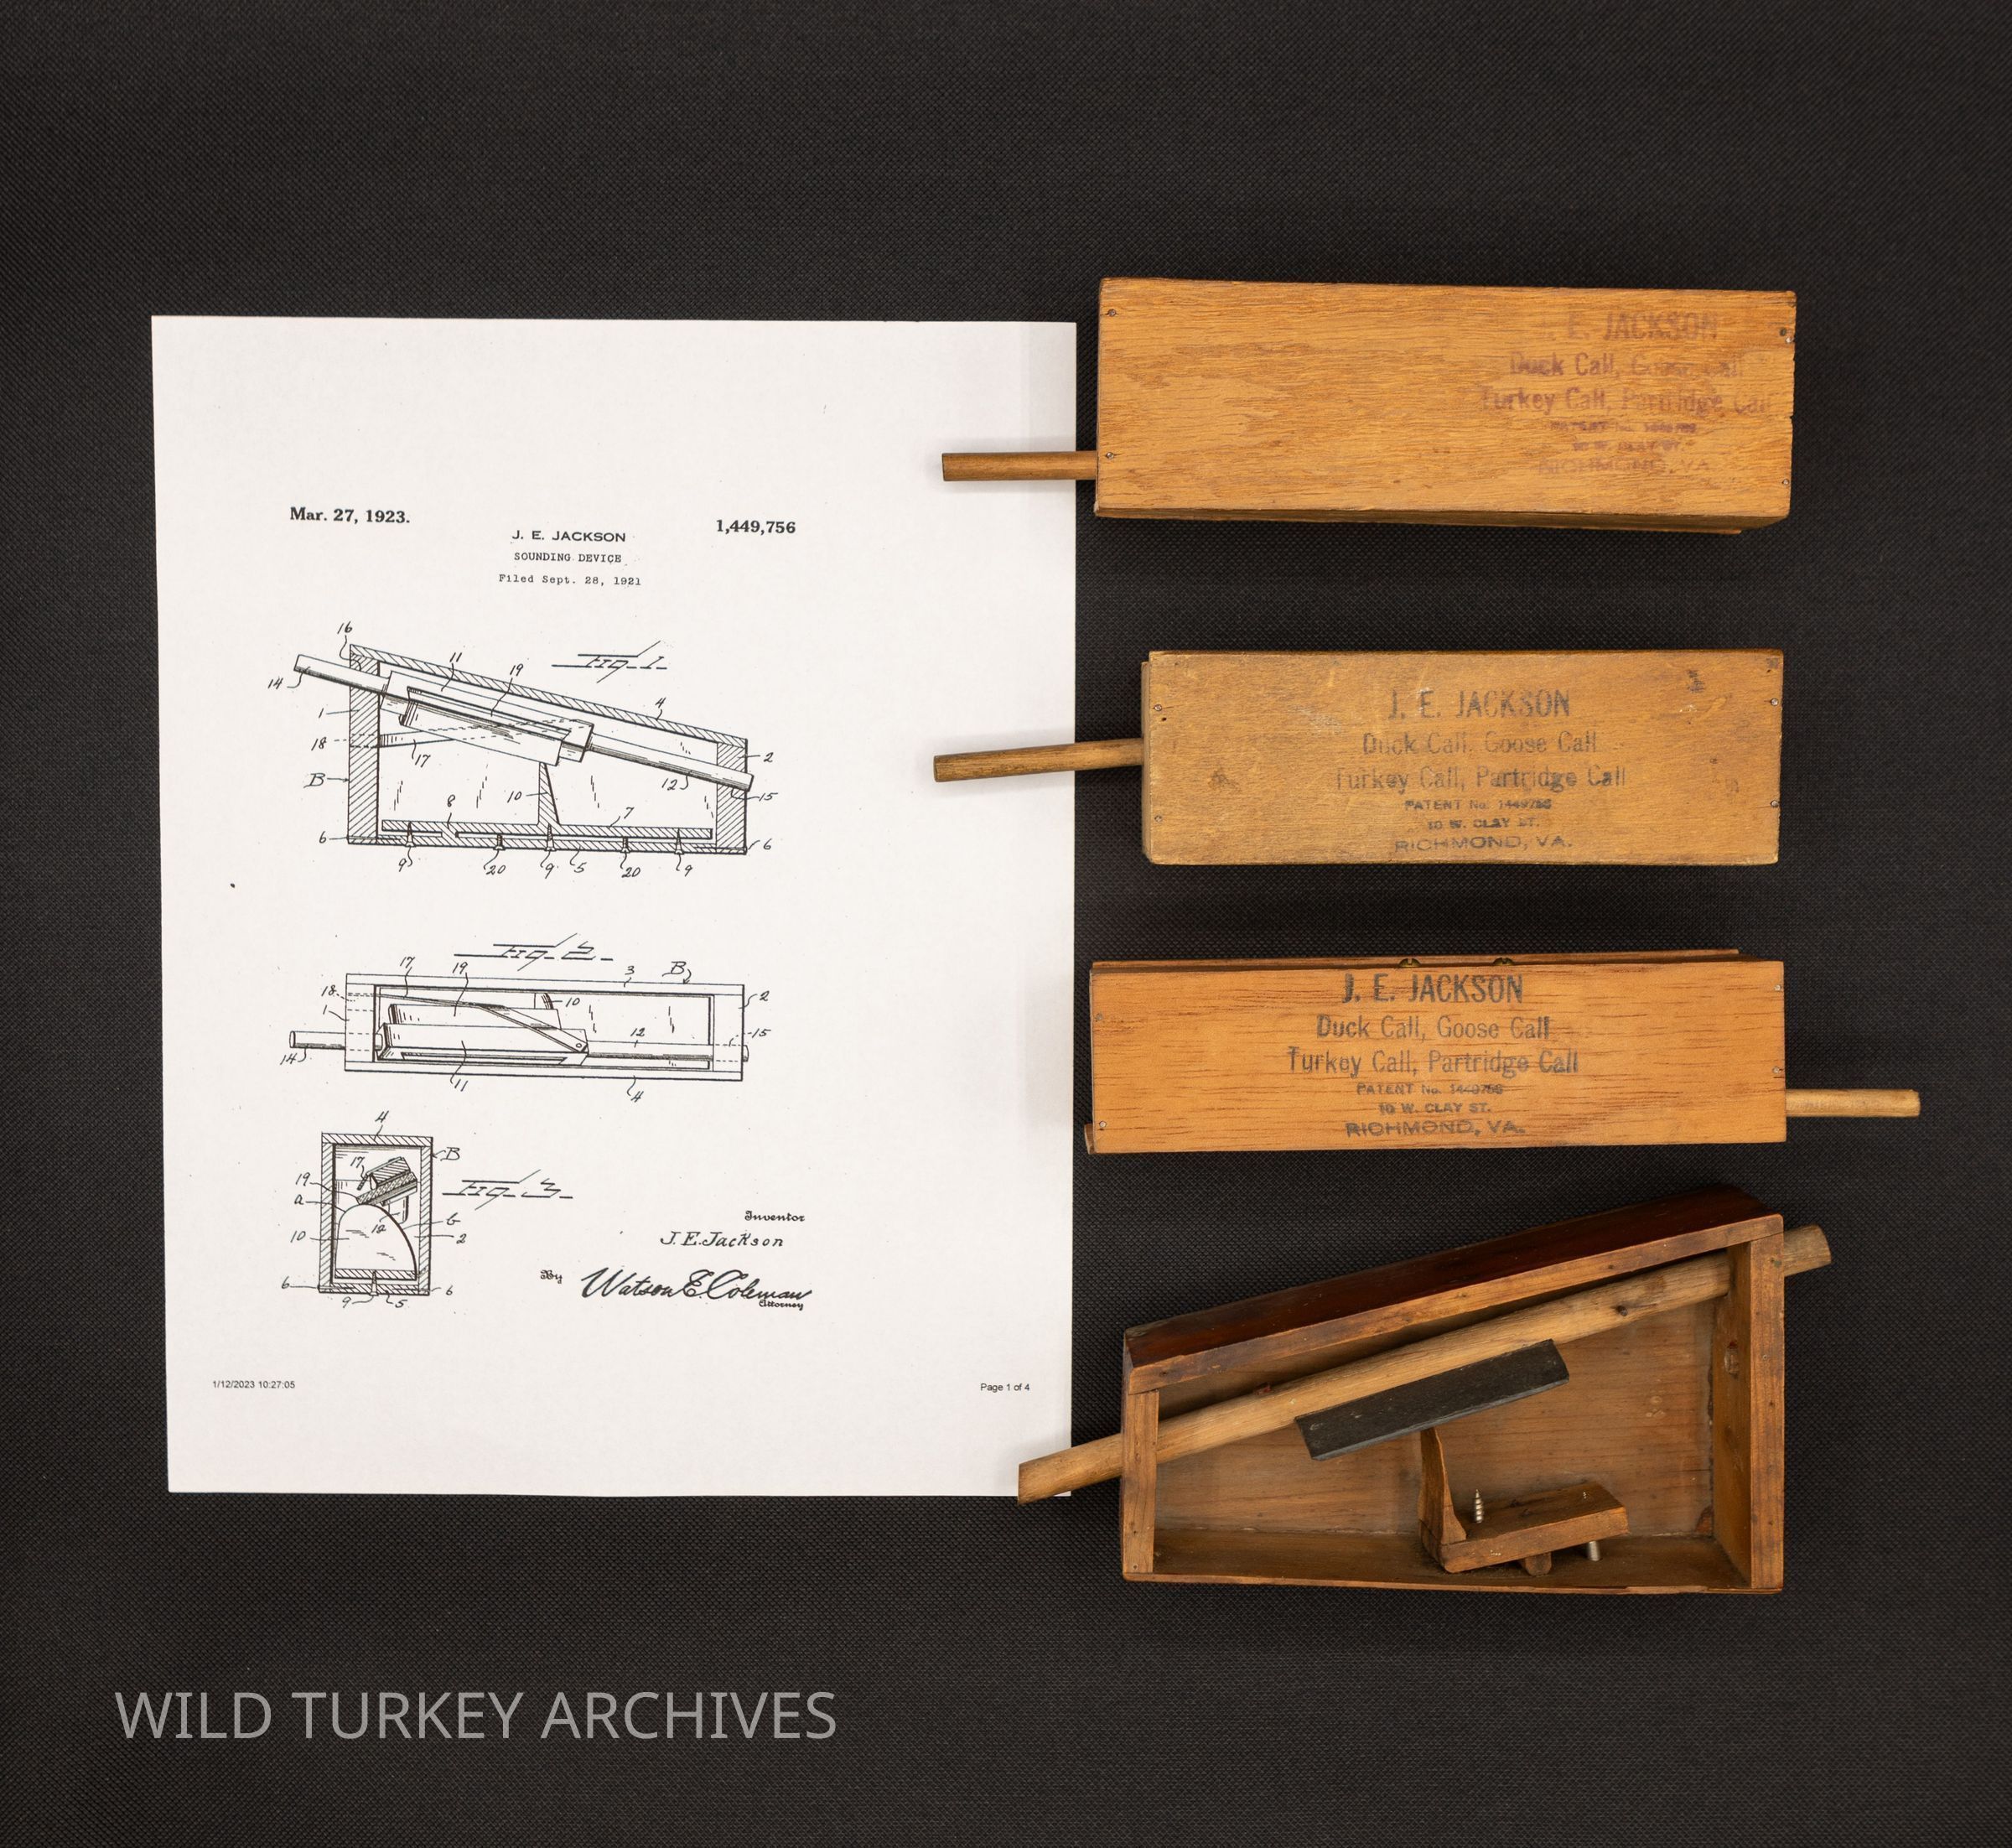 Mar. 27, 1923.
1,449,756
J. E. JACKSON
SOUNDING DEVICE
Filed Sept. 28, 1921
Fig-1-
16
11
19
4
14
1
18
B
17
2
12
15
10
8
7
6
6
9
20
9
5
20
9
Fig-2-
17
19
3
B
18
10
2
1
12
15
14
11
4
Fig-3-
4
B
17
19
a
12
b
10
2
6
9
5
6
Inventor
J. E. Jackson
By
Watson E. Coleman
Attorney
1/12/2023 10:27:05
Page 1 of 4
E. JACKSON
Duck Call, Goose Call
Turkey Call, Partridge Call
PATENT No.
10 W. CLAY ST.
RICHMOND, VA
J. E. JACKSON
Duck Call, Goose Call
Turkey Call, Partridge Call
PATENT No. 1449756
10 W. CLAY ST.
RICHMOND, VA.
J. E. JACKSON
Duck Call, Goose Call
Turkey Call, Partridge Call
PATENT No. 1449756
10 W. CLAY ST.
RICHMOND, VA.
WILD TURKEY ARCHIVES